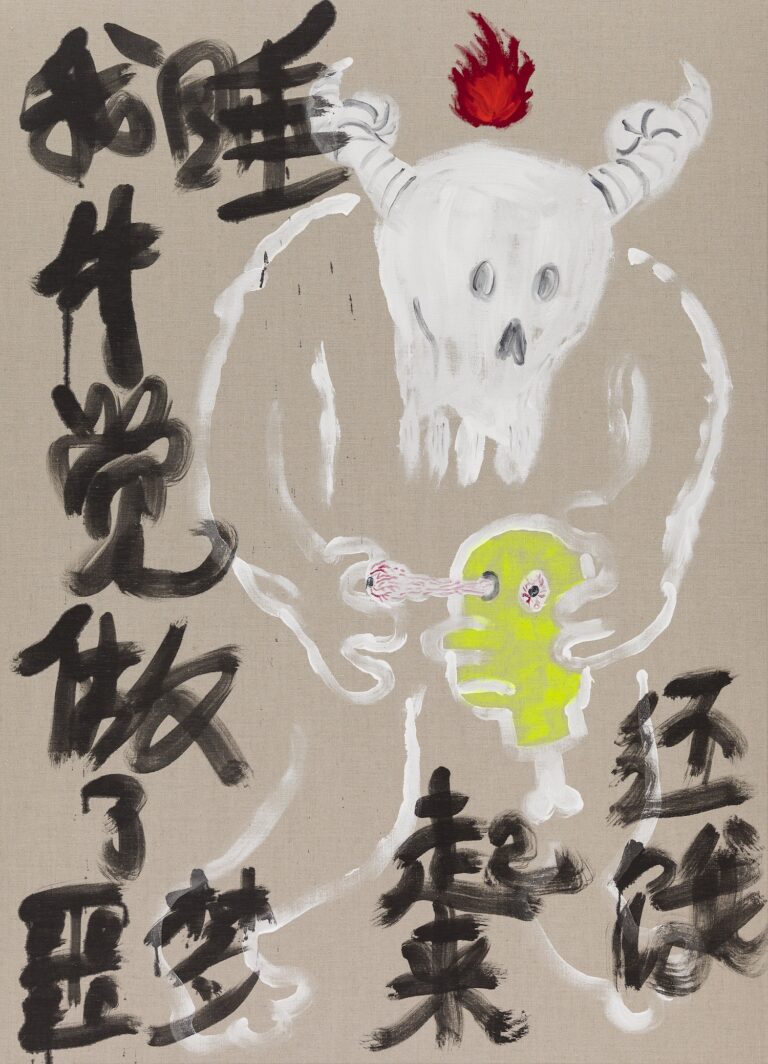 我睡午觉做了噩梦
起来
还饿